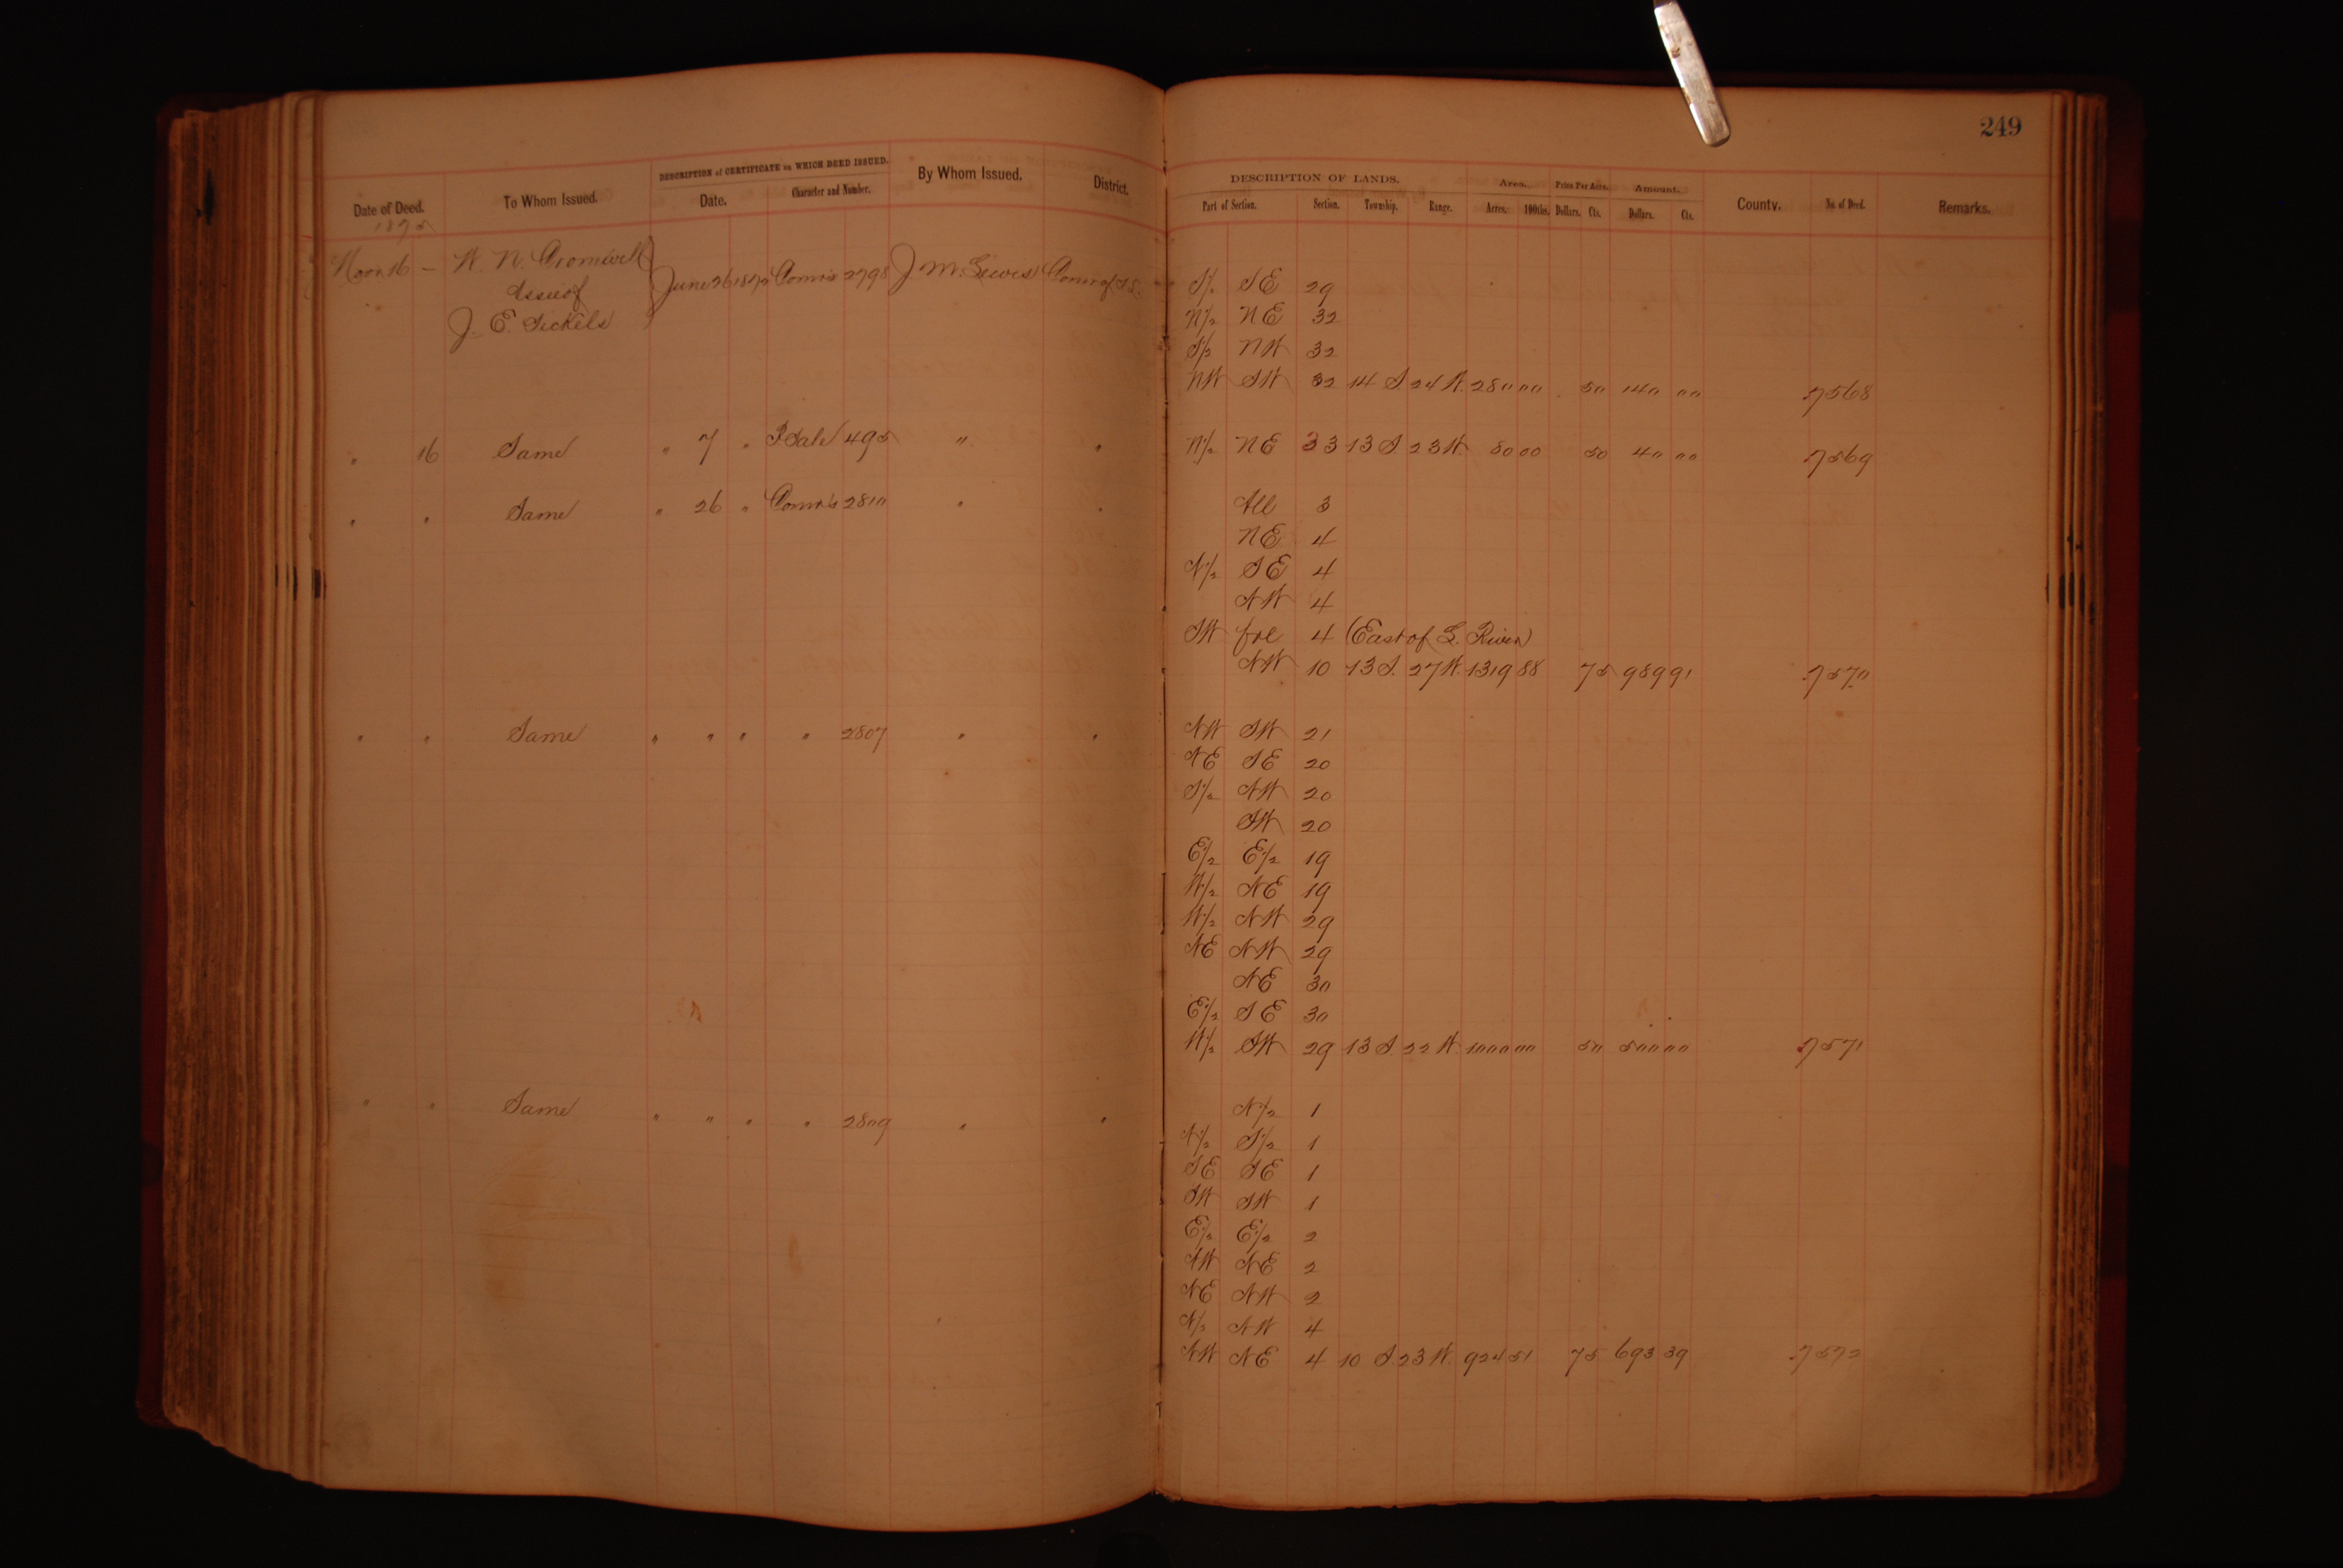 249
DESCRIPTION of CERTIFICATE on WHICH DEED ISSUED.
Date of Deed. To Whom Issued. Date. Character and Number. By Whom Issued. District.
DESCRIPTION OF LANDS. Area. Price Per Acre. Amount.
Part of Section. Section. Township. Range. Acres. 100ths. Dollars. Cts. Dollars. Cts. County. No. of Deed. Remarks.
1875
16 — W. N. Cromwell June 26 1872 Comrs 2798 J. M. Lewis Comr of I. S. S/2 SE 29
Assee of N/2 NE 32
J. E. Sickels S/2 NW 32
NW SW 32 14 S 24 W. 280 00 50 140 00 7568
" 16 Same " 7 " P. Sale 495 " " N/2 NE 33 13 S 23 W. 80 00 50 40 00 7569
" " Same " 26 " Comrs 2810 " " All 3
NE 4
N/2 SE 4
NW 4
SW frl 4 (East of L. River)
NW 10 13 S. 27 W. 1319 88 75 989 91 7570
" " Same " " " " 2807 " " NW SW 21
NE SE 20
S/2 NW 20
SW 20
E/2 E/2 19
W/2 NE 19
W/2 NW 29
NE NW 29
NE 30
E/2 SE 30
W/2 SW 29 13 S. 22 W. 1000 00 50 500 00 7571
" " Same " " " " 2809 " " N/2 1
N/2 S/2 1
SE SE 1
SW SW 1
E/2 E/2 2
NW NE 2
NE NW 2
N/2 NW 4
NW NE 4 10 S. 23 W. 924 51 75 693 39 7572